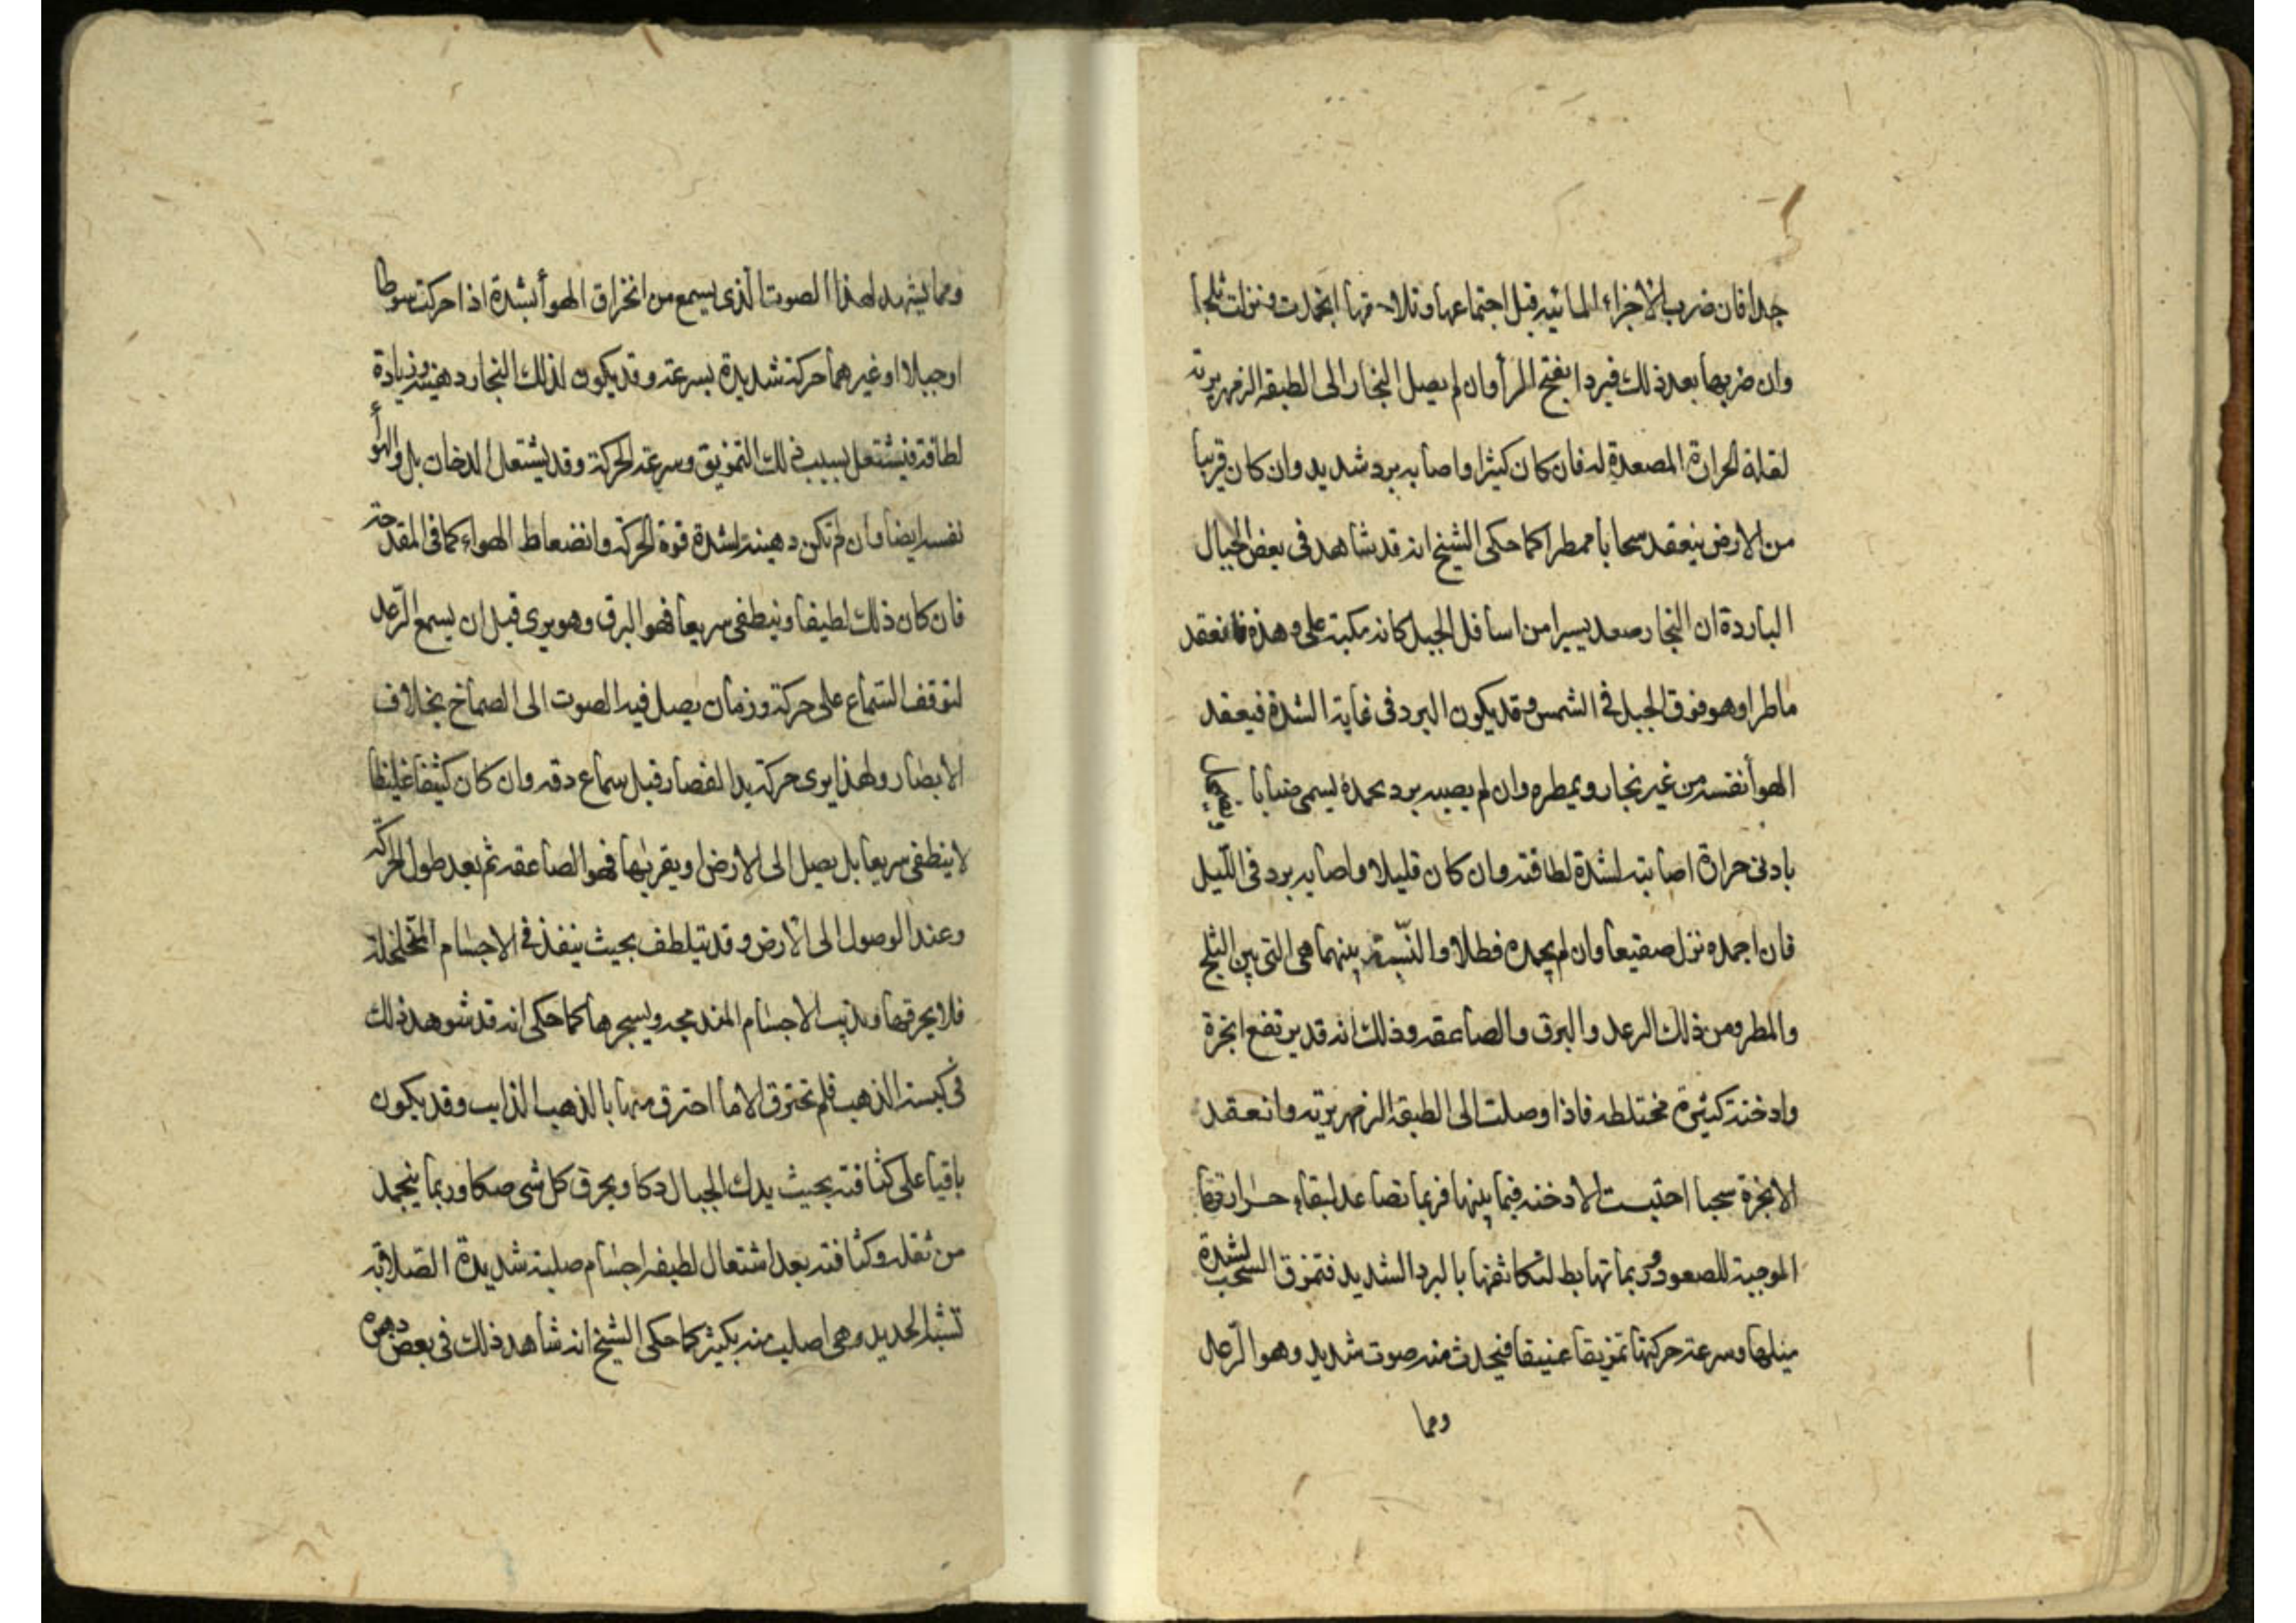 جدا فان ضرب الاجزاء المائيه قبل اجتماعها وتلاحقها انجمدت ونزلت ثلجا
وان ضربها بعد ذلك فبردا بفتح الرا وان لم يصل البخار الى الطبقه الزمهريرية
لقلة الحرارة المصعدة له فان كان كثيرا واصابه برد شديد وان كان قريبا
من الارض ينعقد سحابا ممطرا كما حكى الشيخ انه قد شاهد فى بعض الجبال
الباردة ان البخار صعد يسيرا من اسافل الجبل كانه مكبة على وهدة فانعقد
ماطرا وهو فوق الجبل فى الشمس وقد يكون البرد فى غاية الشدة فيعقد
الهوأ نفسه من غير بخار ويمطره وان لم يصبه برد يجمده يسمى ضبابا
بادنى حرارة اصابته لشدة لطافته وان كان قليلا واصابه برد فى الليل
فان اجمده نزل صقيعا وان لم يجمده فطلا والنسبة بينهما هى التى بين الثلج
والمطر ومن ذلك الرعد والبرق والصاعقه وذلك انه قد يرتفع ابخرة
وادخنة كثيرة مختلطه فاذا وصلت الى الطبقه الزمهريريه وانعقد
الابخرة سحبا احتبست الادخنه فيما بينها فربما تصاعد لبقاء حرارتها
الموجبة للصعود وربما تهابط لتكاثفها بالبرد الشديد فتمزق السحب لشدة
ميلها وسرعة حركتها تمزيقا عنيفا فيحدث منه صوت شديد وهو الرعد
ومما
ومما يشهد لهذا الصوت الذى يسمع من انخراق الهوأ بشدة اذا حركت سوطا
او حبلا او غيرهما حركة شديدة بسرعة وقد يكون لذلك البخار دهنية وزيادة
لطافة فيشتعل بسبب ذلك التمزيق وسرعة الحركة وقد يشتعل الدخان بل والهوأ
نفسه ايضا وان لم تكن دهنية لشدة قوة الحركة وانضعاط الهواء كما فى المقدحة
فان كان ذلك لطيفا وينطفى سريعا فهو البرق وهو يرى قبل ان يسمع الرعد
لتوقف السماع على حركة وزمان يصل فيه الصوت الى الصماخ بخلاف
الابصار ولهذا يرى حركة يد القصار قبل سماع دقه وان كان كثيفا غليظا
لا ينطفى سريعا بل يصل الى الارض او يقربها فهو الصاعقه ثم بعد طول الحركة
وعند الوصول الى الارض وقد يتلطف بحيث ينفذ فى الاجسام المتخلخلة
فلا يحرقها ويذيب الاجسام المندمجه ويسجرها كما حكى انه قد شوهد ذلك
فى كيسة الذهب فلم تحترق الا ما احترق منها بالذهب الذايب وقد يكون
باقيا على كثافته بحيث يدك الجبال دكا ويحرق كل شى صكا وربما ينجمد
من ثقله وكثافته بعد اشتعال لطيفه اجسام صلبة شديدة الصلابه
تشبه الحديد وهى اصلب منه بكثير كما حكى الشيخ انه شاهد ذلك فى بعض دهره